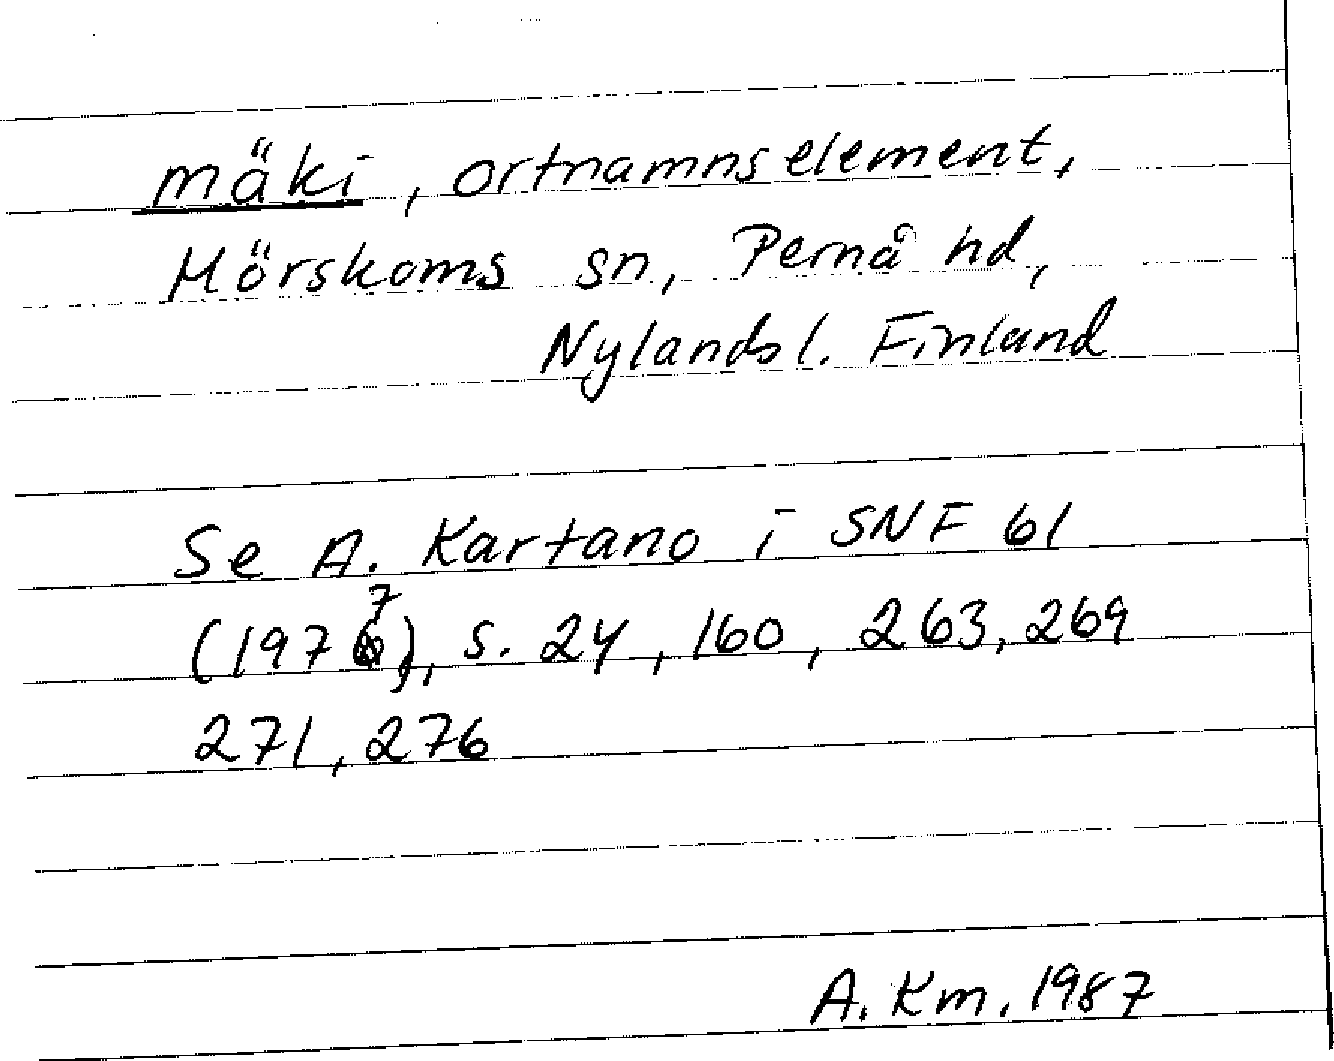 mäki, ortnamnselement,
Mörskoms sn, Pernå hd,
Nylands l. Finland
Se A. Kartano i SNF 61
(1977), s. 24, 160, 263, 269
271, 276
A. Km. 1987